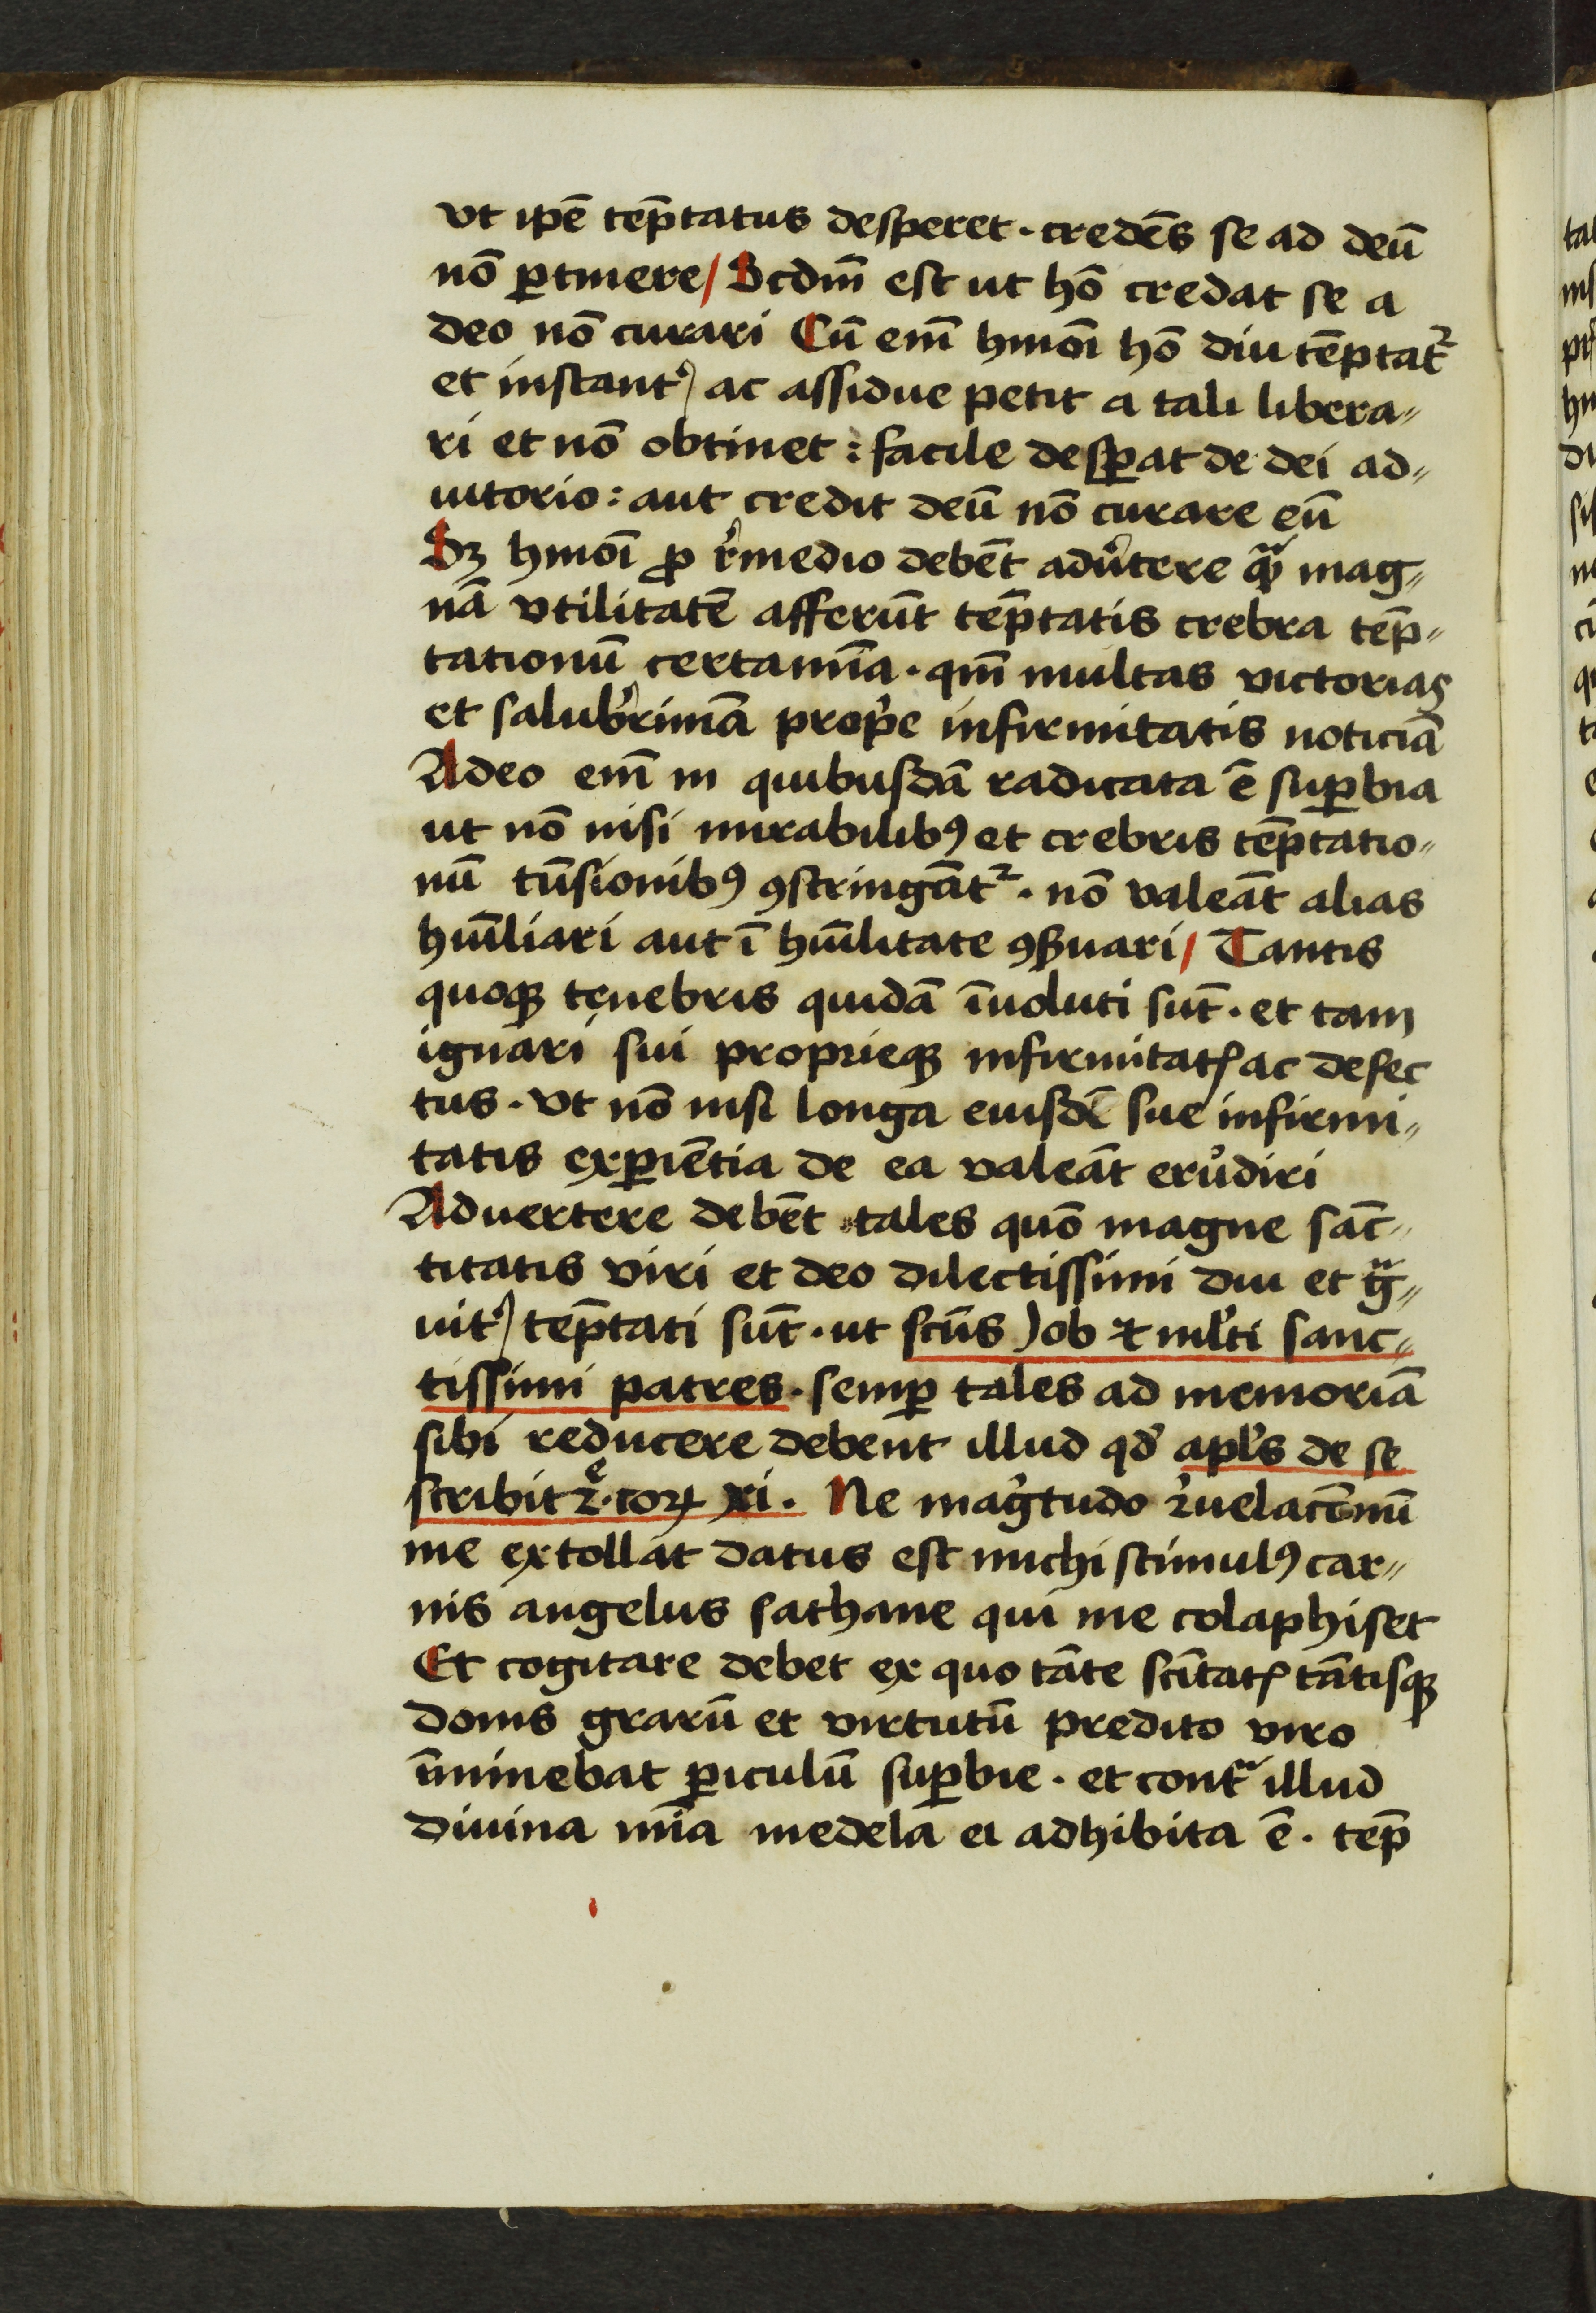 vt ip̄e tēp̄tatus desperet · credēs se ad deū
nō ꝑtinere / Scdm̄ est ut hō credat se a
deo nō curari Cū em̄ hmōi hō diu tēptat᷑
et instant᷑ ac assidue petit a tali libera〃
ri et nō obtinet : facile desꝑat de dei ad〃
iutorio : aut credit deū nō curare eū
Sꝫ hmōi ꝓ r̓medio debēt adu̓tere qᷓ mag〃
nā vtilitatē afferūt tēp̄tatis crebra tēp̄〃
tationū certamīa · qm̄ multas victorias
et salub̓rimā prop̓e infirmitatis noticiā
Adeo em̄ in quibusdā radicata ē suꝑbia
ut nō nisi mirabilibꝰ et crebris tēp̄tatio〃
nū tūsionibꝰ ꝯstringāt᷑ · nō valeāt alias
hūiliari aut ī hūilitate ꝯẜuari / Tantis
quoqꝫ tenebris quidā īuoluti sūt · et tam
ignari sui proprieqꝫ infirmitatꝭ ac defec
tus · vt nō nisi longa eiusdē sue infirmi〃
tatis exꝑiētia de ea valeāt erůdiri
Aduertere debēt tales quō magne sāc〃
titatis viri et deo dilectissimi diu et gᷓ〃
uit᷑ tēp̄tati sūt · ut sctūs Job ⁊ ml̓ti sanc〃
tissimi patres · semꝑ tales ad memoriā
sibi reducere debent illud qd̓ apl̓s de se
scribit 2ᵉ · coꝝ xi · Ne mag̓tudo r̓uelacōnū
me extollat datus est michi stimulꝰ car〃
nis angelus sathane qui me colaphiset
Et cogitare debet ex quo tāte scītatꝭ tātisqꝫ
donis grarū et virtutū predito viro
īminebat ꝑiculū suꝑbie · et contᷓ illud
diuina mīa medela ei adhibita ē · tēp̄